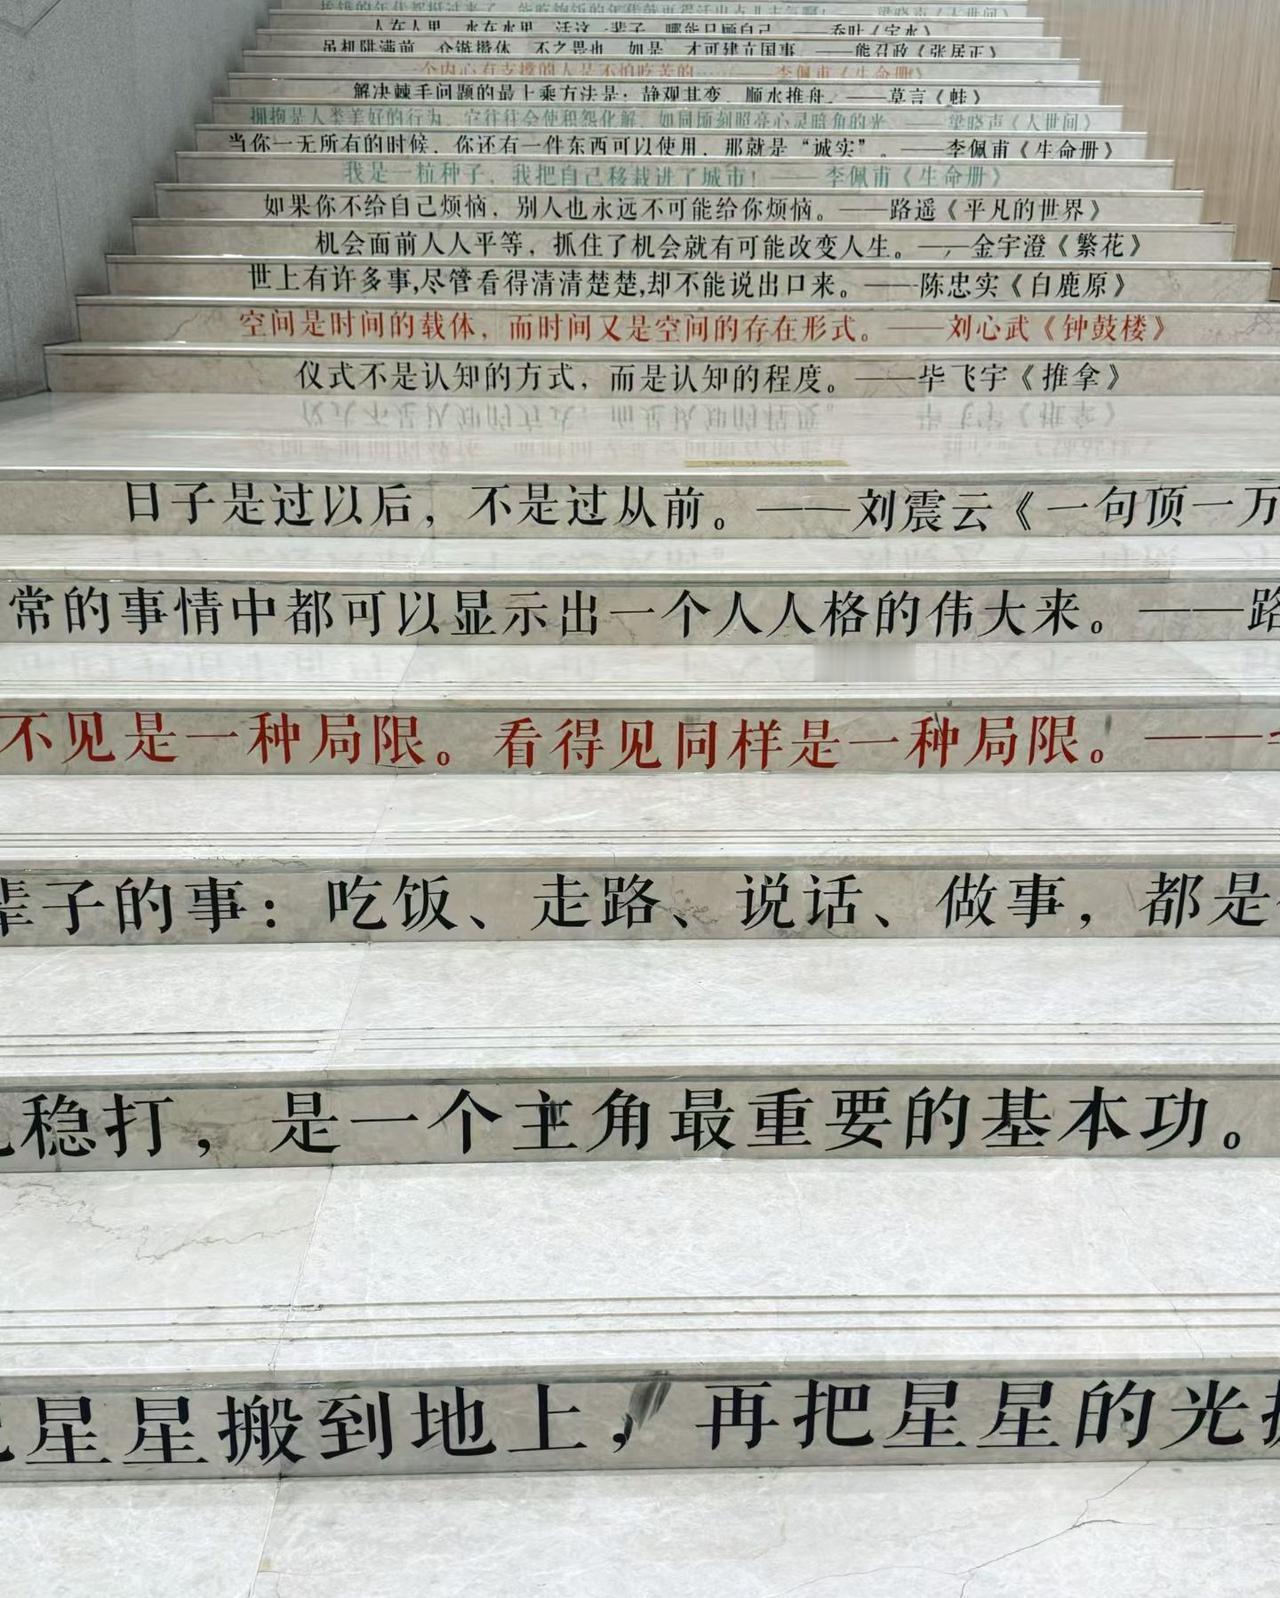 人在人里，水在水里，活这一辈子，哪能只顾自己。——乔叶《宝水》
虽机阱满前，众镞攒体，不之畏也，如是，才可建立国事。——熊召政《张居正》
一个内心有支撑的人是不怕吃苦的……——李佩甫《生命册》
解决棘手问题的最上乘方法是：静观其变，顺水推舟。——莫言《蛙》
拥抱是人类美好的行为，它往往会使积怨化解，如同顷刻照亮心灵暗角的光。——梁晓声《人世间》
当你一无所有的时候，你还有一件东西可以使用，那就是“诚实”。——李佩甫《生命册》
我是一粒种子，我把自己移栽进了城市！——李佩甫《生命册》
如果你不给自己烦恼，别人也永远不可能给你烦恼。——路遥《平凡的世界》
机会面前人人平等，抓住了机会就有可能改变人生。——金宇澄《繁花》
世上有许多事,尽管看得清清楚楚,却不能说出口来。——陈忠实《白鹿原》
空间是时间的载体，而时间又是空间的存在形式。——刘心武《钟鼓楼》
仪式不是认知的方式，而是认知的程度。——毕飞宇《推拿》
日子是过以后，不是过从前。——刘震云《一句顶一万
常的事情中都可以显示出一个人人格的伟大来。——路
不见是一种局限。看得见同样是一种局限。——
辈子的事：吃饭、走路、说话、做事，都是
稳打，是一个主角最重要的基本功。
星星搬到地上，再把星星的光